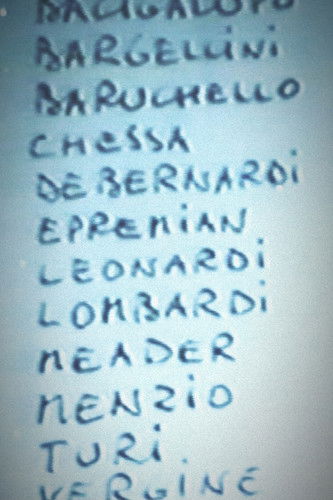 BACIGALUPO
BARGELLINI
BARUCHELLO
CHESSA
DEBERNARDI
EPREMIAN
LEONARDI
LOMBARDI
MEADER
MENZIO
TURI.
VERGINE